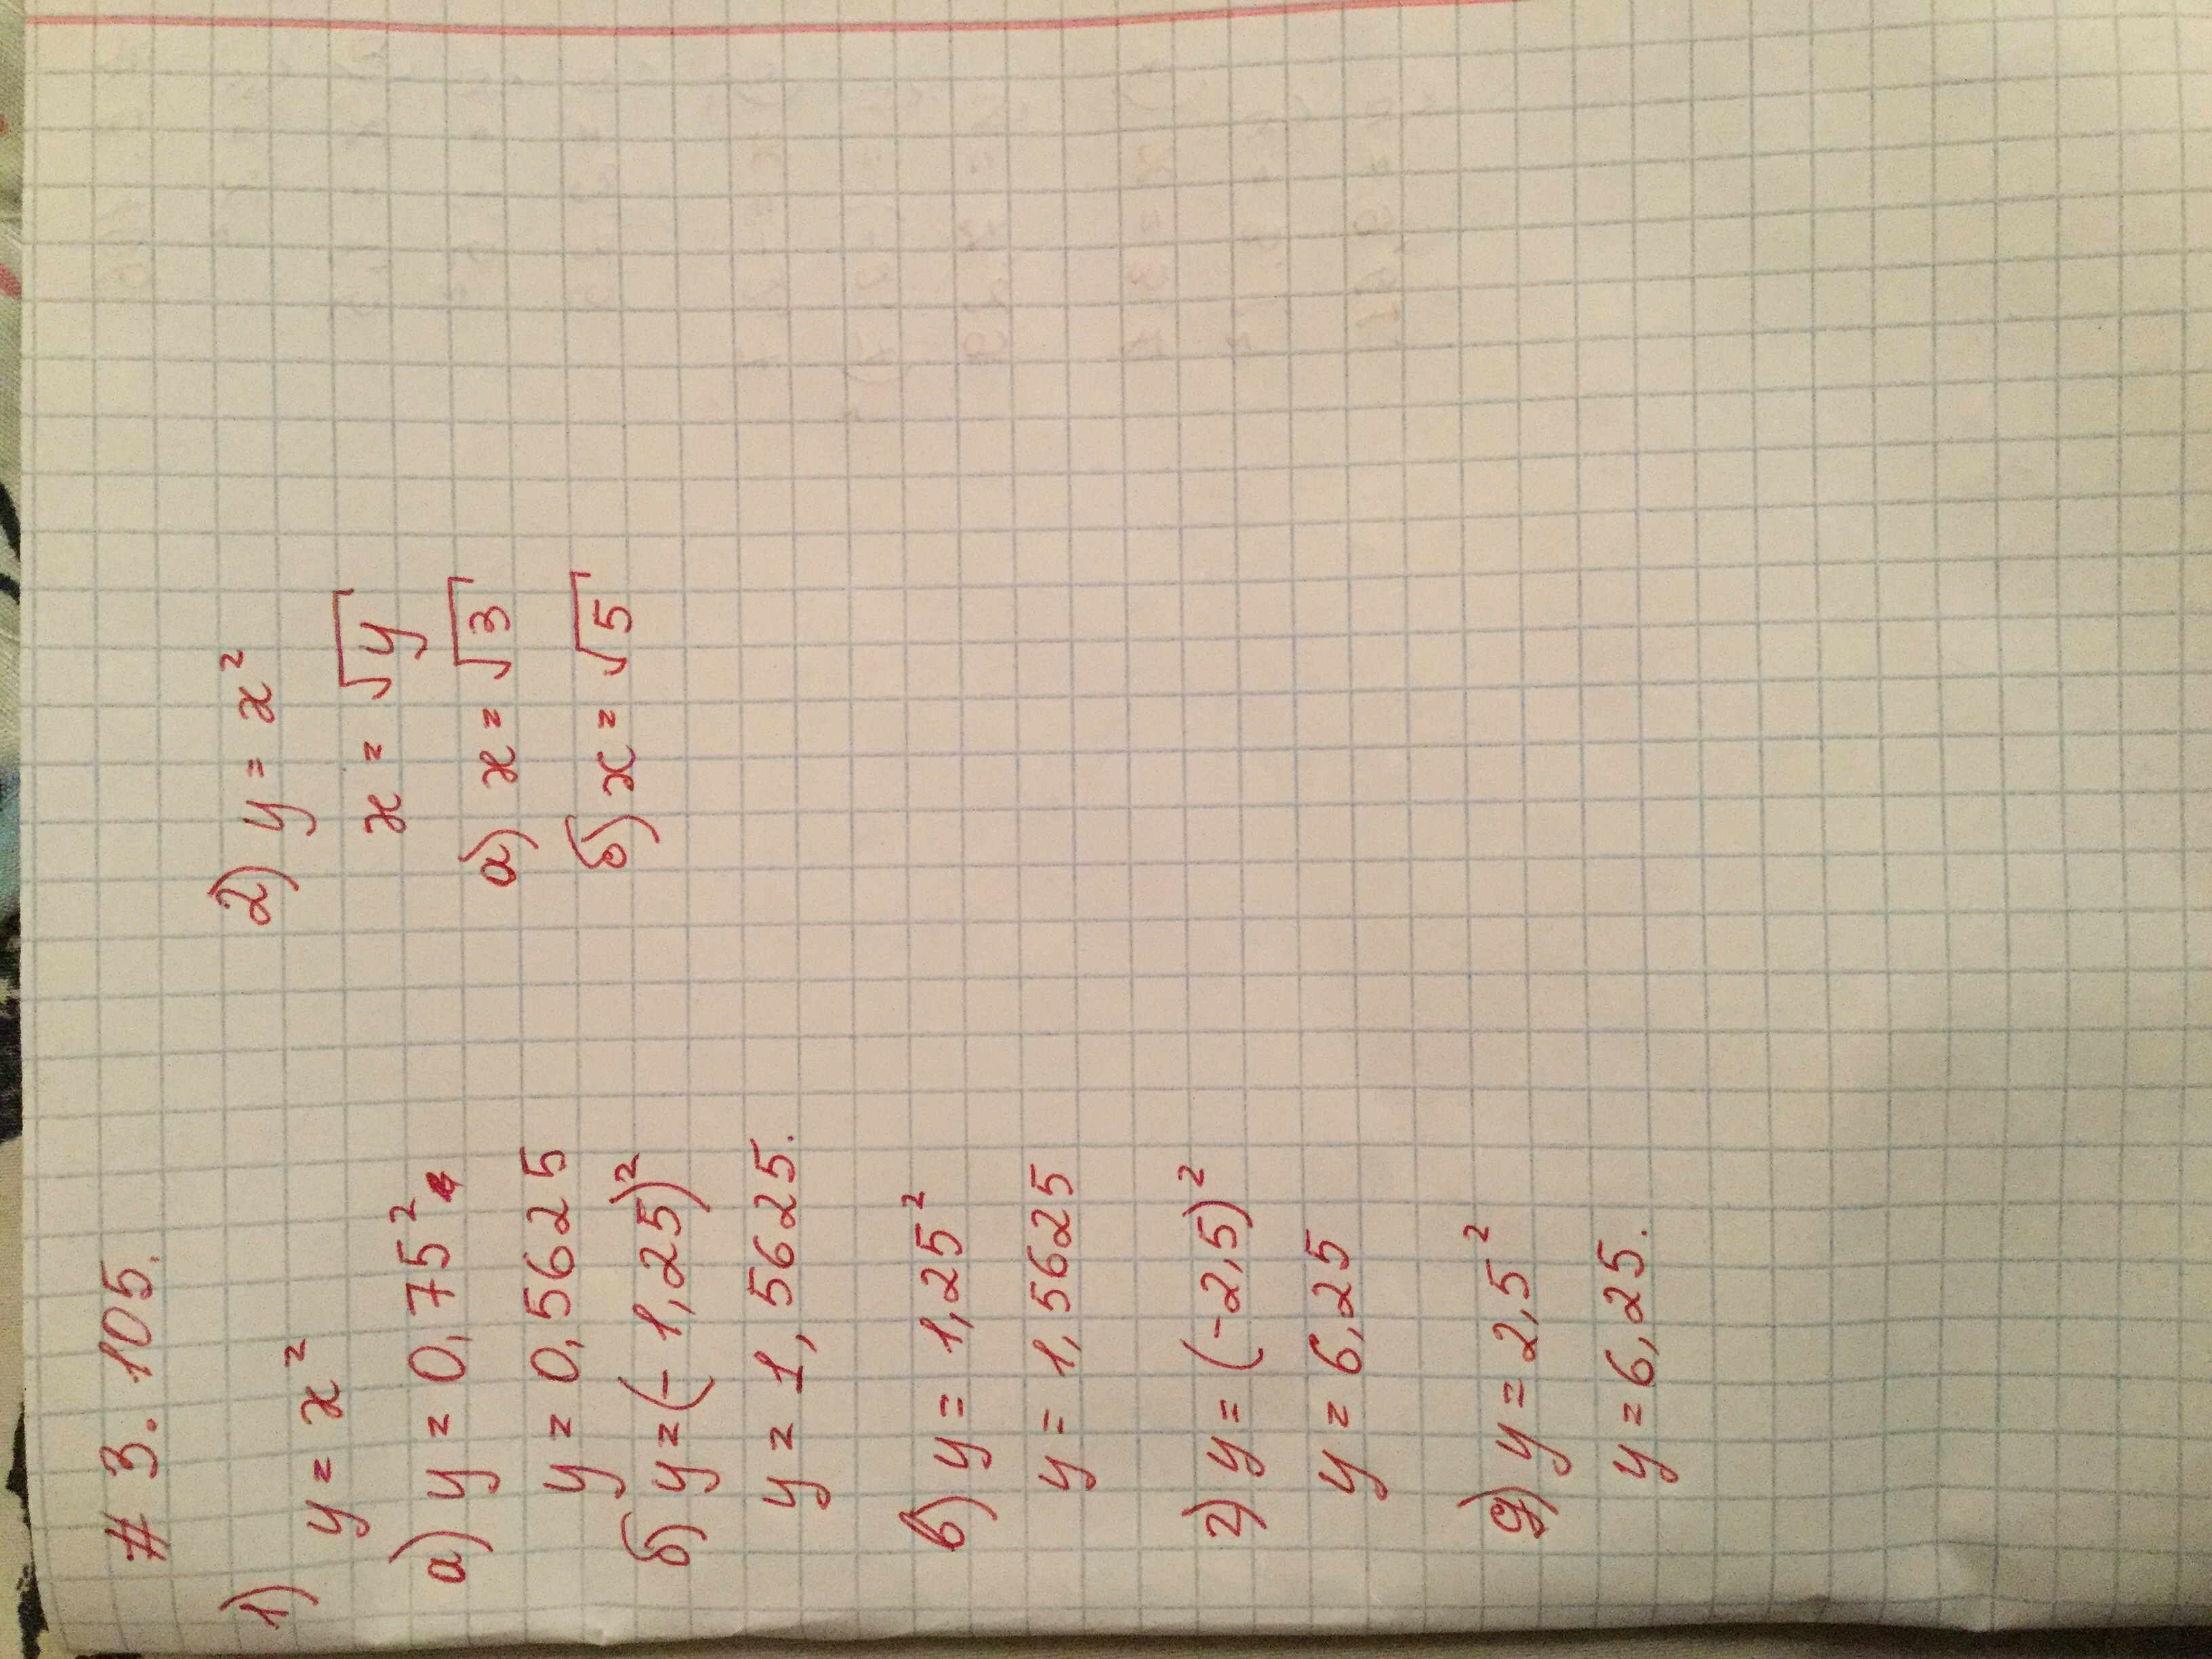 # 3. 105.
1)
y = x²
а) y = 0,75²
y = 0,5625
б) y = (- 1,25)²
y = 1,5625.
в) y = 1,25²
y = 1,5625
г) y = (-2,5)²
y = 6,25
д) y = 2,5²
y = 6,25.
2) y = x²
x = √y
а) x = √3
б) x = √5